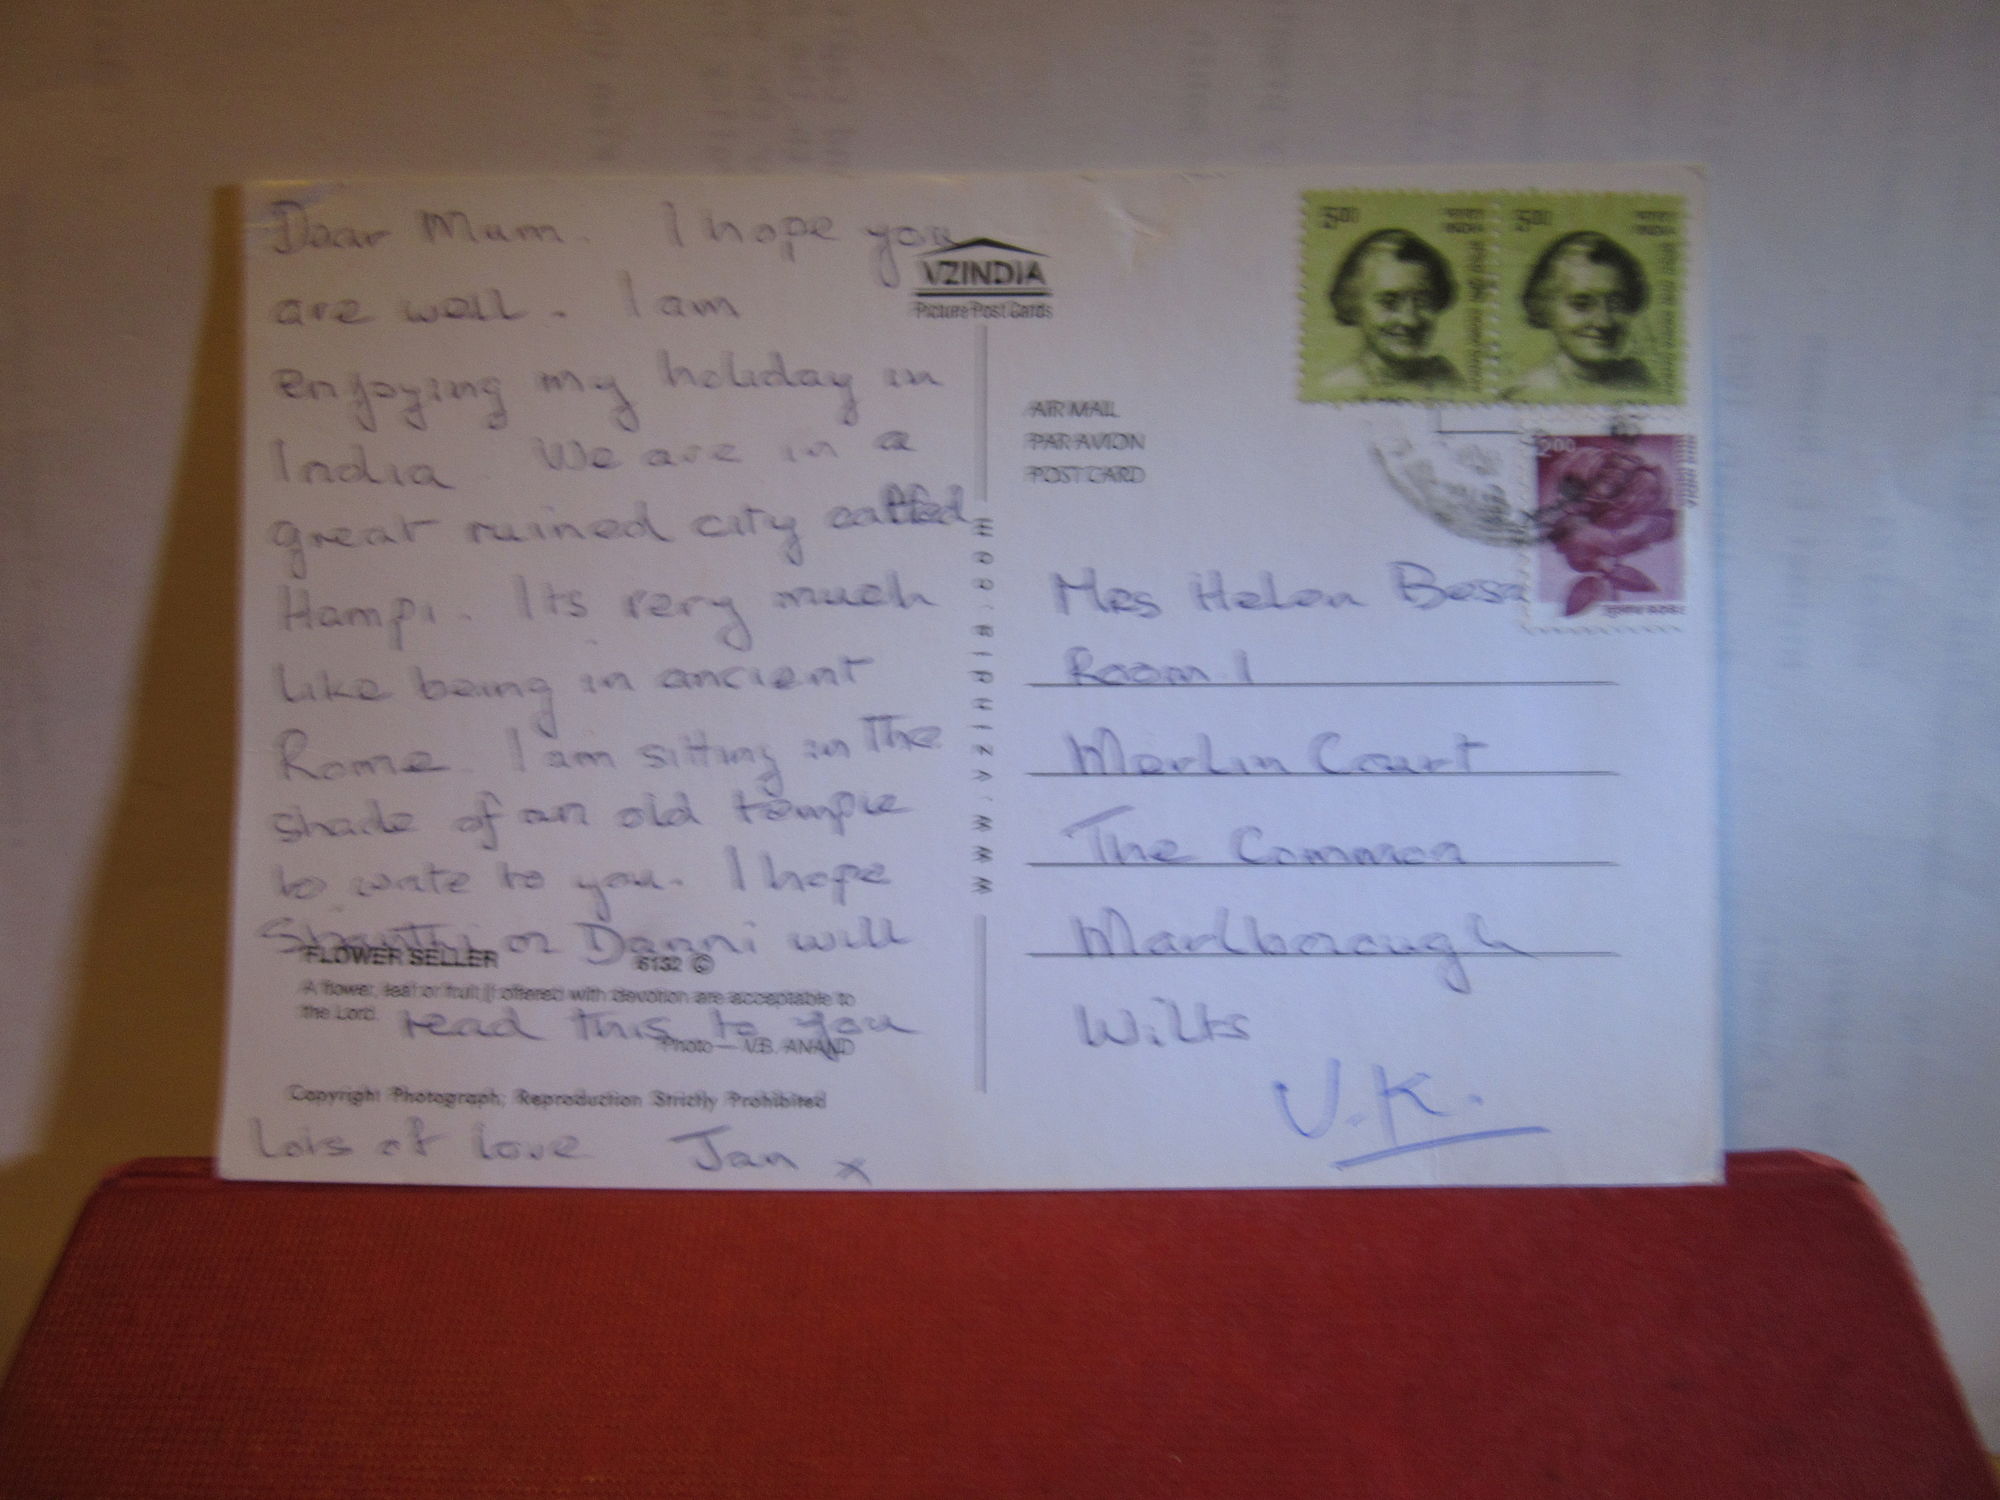 Dear Mum. I hope you
are well. I am
enjoying my holiday in
India. We are in a
great ruined city called
Hampi. Its very much
like being in ancient
Rome. I am sitting in the
shade of an old temple
to write to you. I hope
Shantti or Danni will
read this to you
Lots of love Jan x
FLOWER SELLER 6132 ©
A flower, leaf or fruit if offered with devotion are acceptable to
the Lord.
Photo— V.B. ANAND
Copyright Photograph; Reproduction Strictly Prohibited
VZINDIA
Picture Post Cards
AIR MAIL
PAR AVION
POST CARD
5.00 भारत INDIA
5.00 भारत INDIA
2.00
Mrs Helen
Room 1
Merlin Court
The Common
Marlborough
Wilts
U.K.